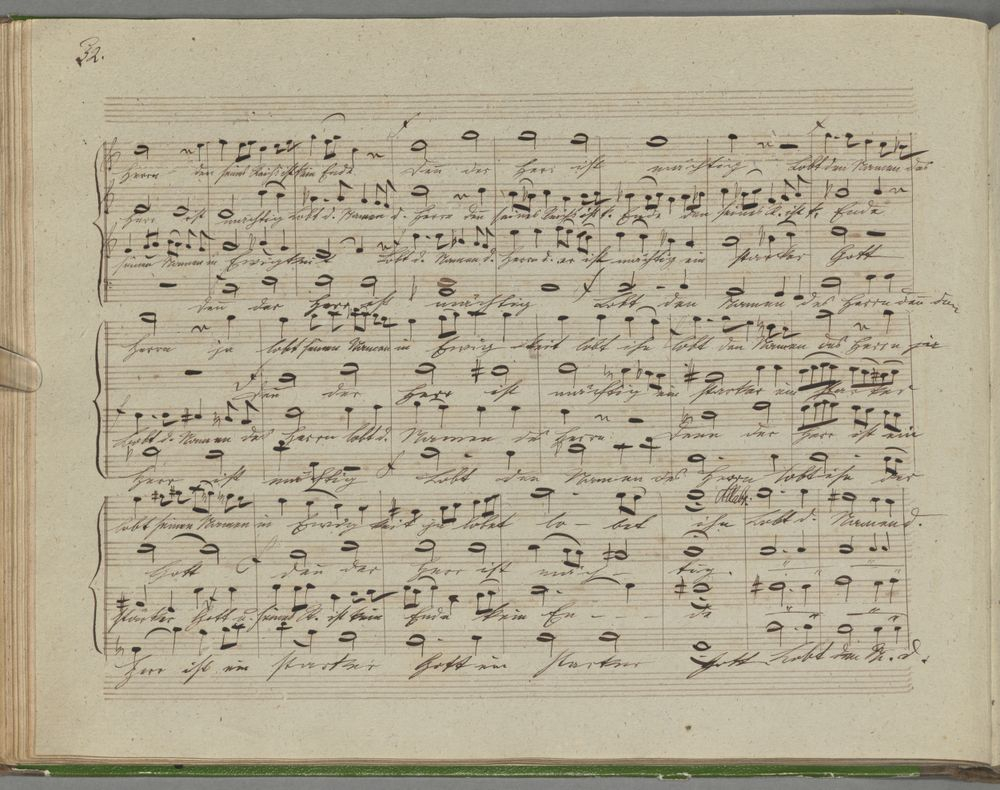 32.
Herrn denn seines Reichs ist kein Ende denn der Herr ist mächtig Lobt den Namen des
Herr ist mächtig Lobt d. Namen d. Herrn denn seines Reichs ist k. Ende denn seines R. ist k. Ende
seinen Namen in Ewigkeit Lobt d. Namen d. Herrn d. er ist mächtig ein starker Gott
denn der Herr ist mächtig Lobt den Namen des Herrn denn der
Herrn ja lobt seinen Namen in Ewigkeit lobt ihn lobt den Namen des Herrn ja
denn der Herr ist mächtig ein starker ein starker
Lobt d. Namen des Herrn lobt d. Namen des Herrn denn der Herr ist ein
Herr ist mächtig Lobt den Namen des Herrn lobt ihn der
lobt seinen Namen in Ewigkeit ja lobet lo bet ihn Lobt d. Namen d.
Gott denn der Herr ist mäch tig.
starker Gott u. seines R. ist kein Ende kein En - - - de
Herr ist ein starker Gott ein starker Gott Lobt den N. d.